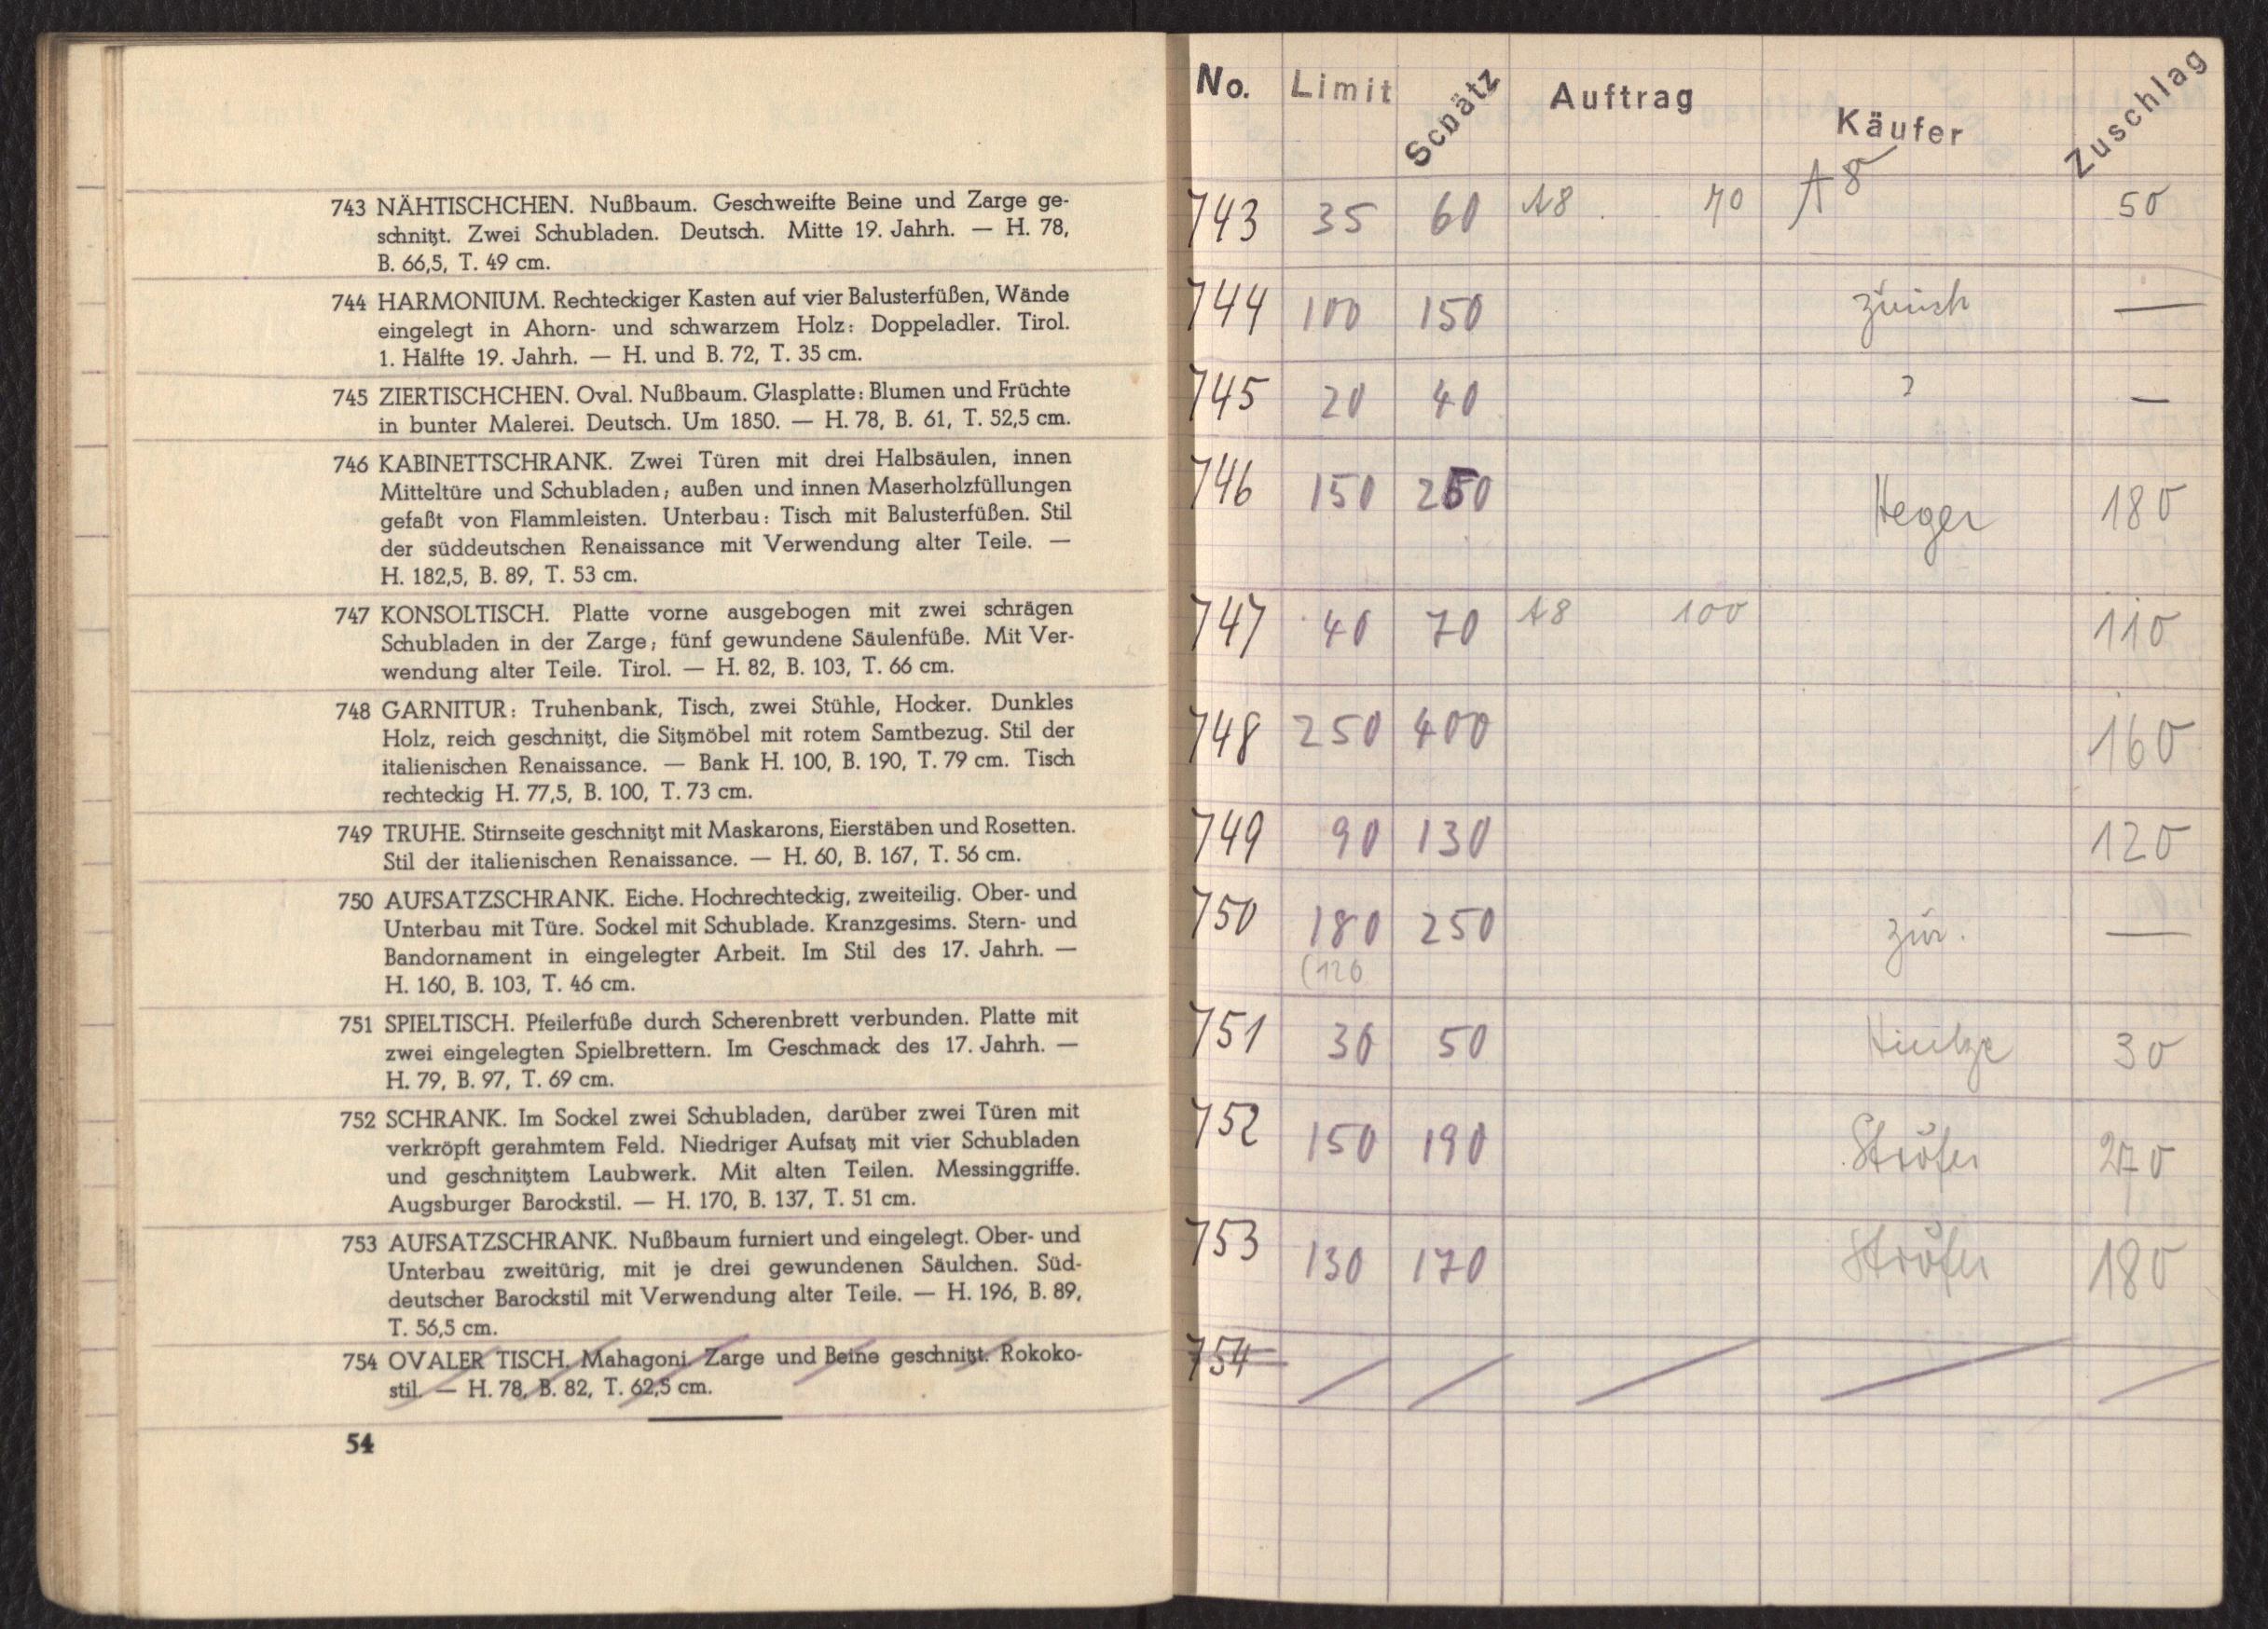 743 NÄHTISCHCHEN. Nußbaum. Geschweifte Beine und Zarge ge-
schnitzt. Zwei Schubladen. Deutsch. Mitte 19. Jahrh. — H. 78,
B. 66,5, T. 49 cm.
744 HARMONIUM. Rechteckiger Kasten auf vier Balusterfüßen, Wände
eingelegt in Ahorn- und schwarzem Holz: Doppeladler. Tirol.
1. Hälfte 19. Jahrh. — H. und B. 72, T. 35 cm.
745 ZIERTISCHCHEN. Oval. Nußbaum. Glasplatte: Blumen und Früchte
in bunter Malerei. Deutsch. Um 1850. — H. 78, B. 61, T. 52,5 cm.
746 KABINETTSCHRANK. Zwei Türen mit drei Halbsäulen, innen
Mitteltüre und Schubladen; außen und innen Maserholzfüllungen
gefaßt von Flammleisten. Unterbau: Tisch mit Balusterfüßen. Stil
der süddeutschen Renaissance mit Verwendung alter Teile. —
H. 182,5, B. 89, T. 53 cm.
747 KONSOLTISCH. Platte vorne ausgebogen mit zwei schrägen
Schubladen in der Zarge; fünf gewundene Säulenfüße. Mit Ver-
wendung alter Teile. Tirol. — H. 82, B. 103, T. 66 cm.
748 GARNITUR: Truhenbank, Tisch, zwei Stühle, Hocker. Dunkles
Holz, reich geschnitzt, die Sitzmöbel mit rotem Samtbezug. Stil der
italienischen Renaissance. — Bank H. 100, B. 190, T. 79 cm. Tisch
rechteckig H. 77,5, B. 100, T. 73 cm.
749 TRUHE. Stirnseite geschnitzt mit Maskarons, Eierstäben und Rosetten.
Stil der italienischen Renaissance. — H. 60, B. 167, T. 56 cm.
750 AUFSATZSCHRANK. Eiche. Hochrechteckig, zweiteilig. Ober- und
Unterbau mit Türe. Sockel mit Schublade. Kranzgesims. Stern- und
Bandornament in eingelegter Arbeit. Im Stil des 17. Jahrh. —
H. 160, B. 103, T. 46 cm.
751 SPIELTISCH. Pfeilerfüße durch Scherenbrett verbunden. Platte mit
zwei eingelegten Spielbrettern. Im Geschmack des 17. Jahrh. —
H. 79, B. 97, T. 69 cm.
752 SCHRANK. Im Sockel zwei Schubladen, darüber zwei Türen mit
verkröpft gerahmtem Feld. Niedriger Aufsatz mit vier Schubladen
und geschnitztem Laubwerk. Mit alten Teilen. Messinggriffe.
Augsburger Barockstil. — H. 170, B. 137, T. 51 cm.
753 AUFSATZSCHRANK. Nußbaum furniert und eingelegt. Ober- und
Unterbau zweitürig, mit je drei gewundenen Säulchen. Süd-
deutscher Barockstil mit Verwendung alter Teile. — H. 196, B. 89,
T. 56,5 cm.
754 OVALER TISCH. Mahagoni. Zarge und Beine geschnitzt. Rokoko-
stil. — H. 78, B. 82, T. 62,5 cm.
54
No. Limit Schätz Auftrag Käufer Zuschlag
743 35 60 A8 70 A8 50
744 100 150 zürück —
745 20 40 ? —
746 150 250 Heger 180
747 40 70 A8 100 110
748 250 400 160
749 90 130 120
750 180 250 zür. —
(120
751 30 50 30
752 150 190 Ströfer 270
753 130 170 Ströfer 180
754